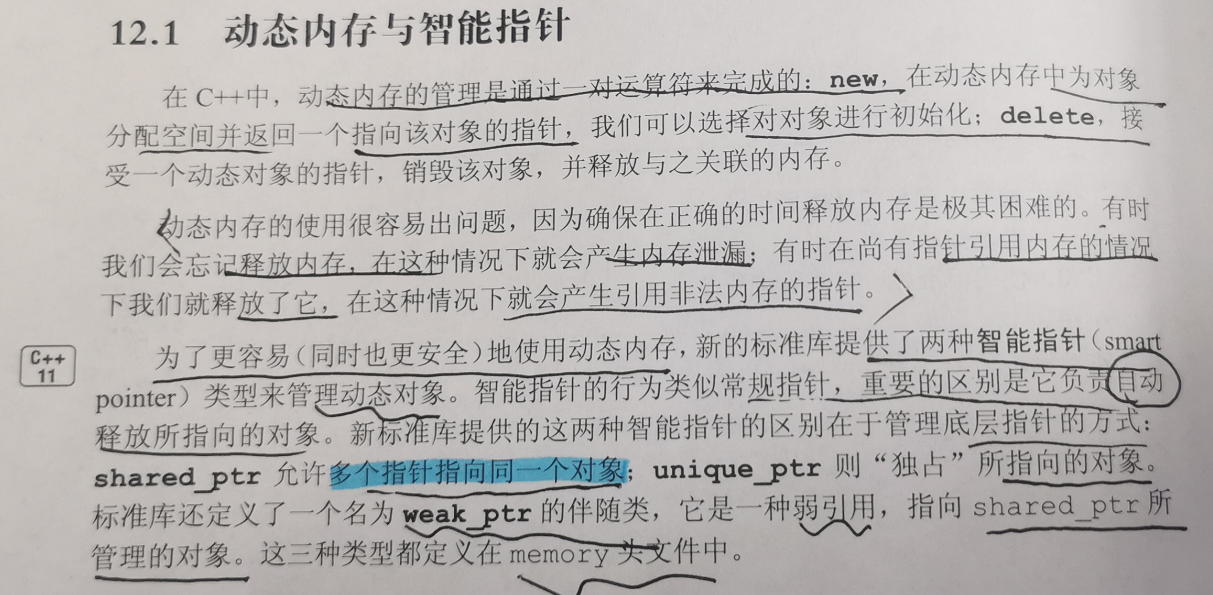 12.1 动态内存与智能指针
在 C++中，动态内存的管理是通过一对运算符来完成的：new，在动态内存中为对象
分配空间并返回一个指向该对象的指针，我们可以选择对对象进行初始化；delete，接
受一个动态对象的指针，销毁该对象，并释放与之关联的内存。
动态内存的使用很容易出问题，因为确保在正确的时间释放内存是极其困难的。有时
我们会忘记释放内存，在这种情况下就会产生内存泄漏；有时在尚有指针引用内存的情况
下我们就释放了它，在这种情况下就会产生引用非法内存的指针。
C++
11
为了更容易（同时也更安全）地使用动态内存，新的标准库提供了两种智能指针（smart
pointer）类型来管理动态对象。智能指针的行为类似常规指针，重要的区别是它负责自动
释放所指向的对象。新标准库提供的这两种智能指针的区别在于管理底层指针的方式：
shared_ptr 允许多个指针指向同一个对象；unique_ptr 则“独占”所指向的对象。
标准库还定义了一个名为 weak_ptr 的伴随类，它是一种弱引用，指向 shared_ptr 所
管理的对象。这三种类型都定义在 memory 头文件中。